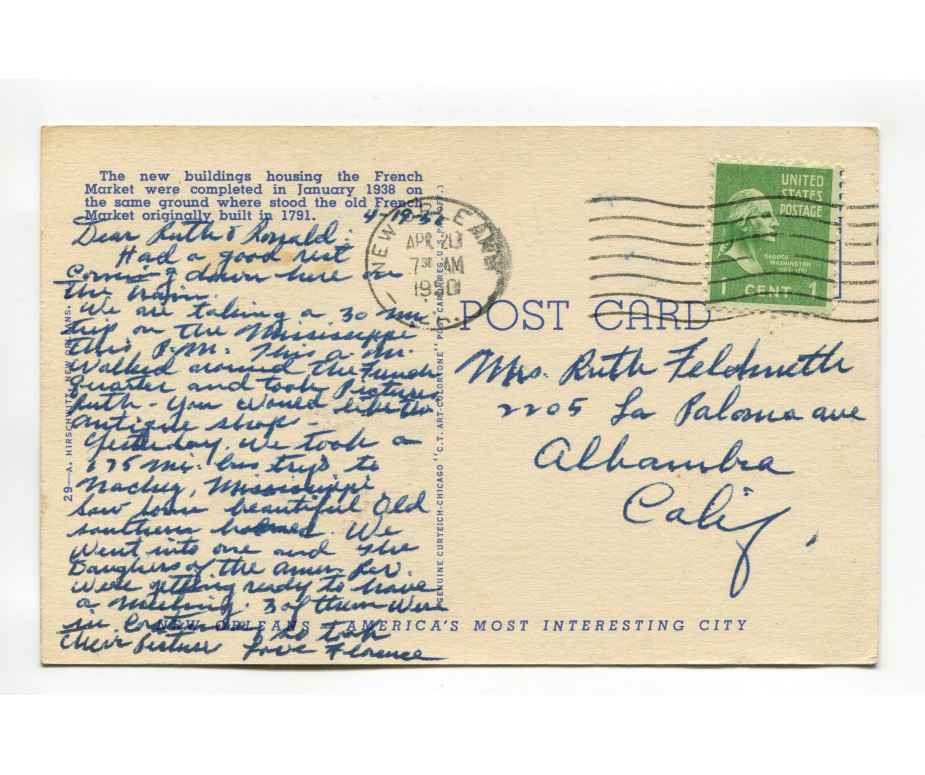 The new buildings housing the French
Market were completed in January 1938 on
the same ground where stood the old French
Market originally built in 1791.
Dear Ruth & Ronald:
Had a good rest
Coming down here on
the train.
We are taking a 30 mi
trip on the Mississippi
this P.M. This a.m.
walked around the French
Quarter and took Pictures
Ruth - You would like the
antique shops -
Yesterday, we took a
175 mi. bus trip to
Mississippi
Saw some beautiful Old
southern homes. We
went into one and the
Daughers of the Amer. Rev.
were getting ready to have
a meeting. 3 of them were
in so took
their picture Love Florence
29—A. HIRSCHWITZ, NEW ORLEANS,
GENUINE CURTEICH-CHICAGO "C.T. ART-COLORTONE" POST CARD (REG. U.S. PAT. OFF.)
NEW ORLEANS
APR 20
7 30 AM
1950
UNITED
STATES
POSTAGE
GEORGE
WASHINGTON
1 CENT 1
POST CARD
Mrs. Ruth Feldmeth
2205 La Paloma ave
Alhambra
Calif.
NEW ORLEANS AMERICA'S MOST INTERESTING CITY